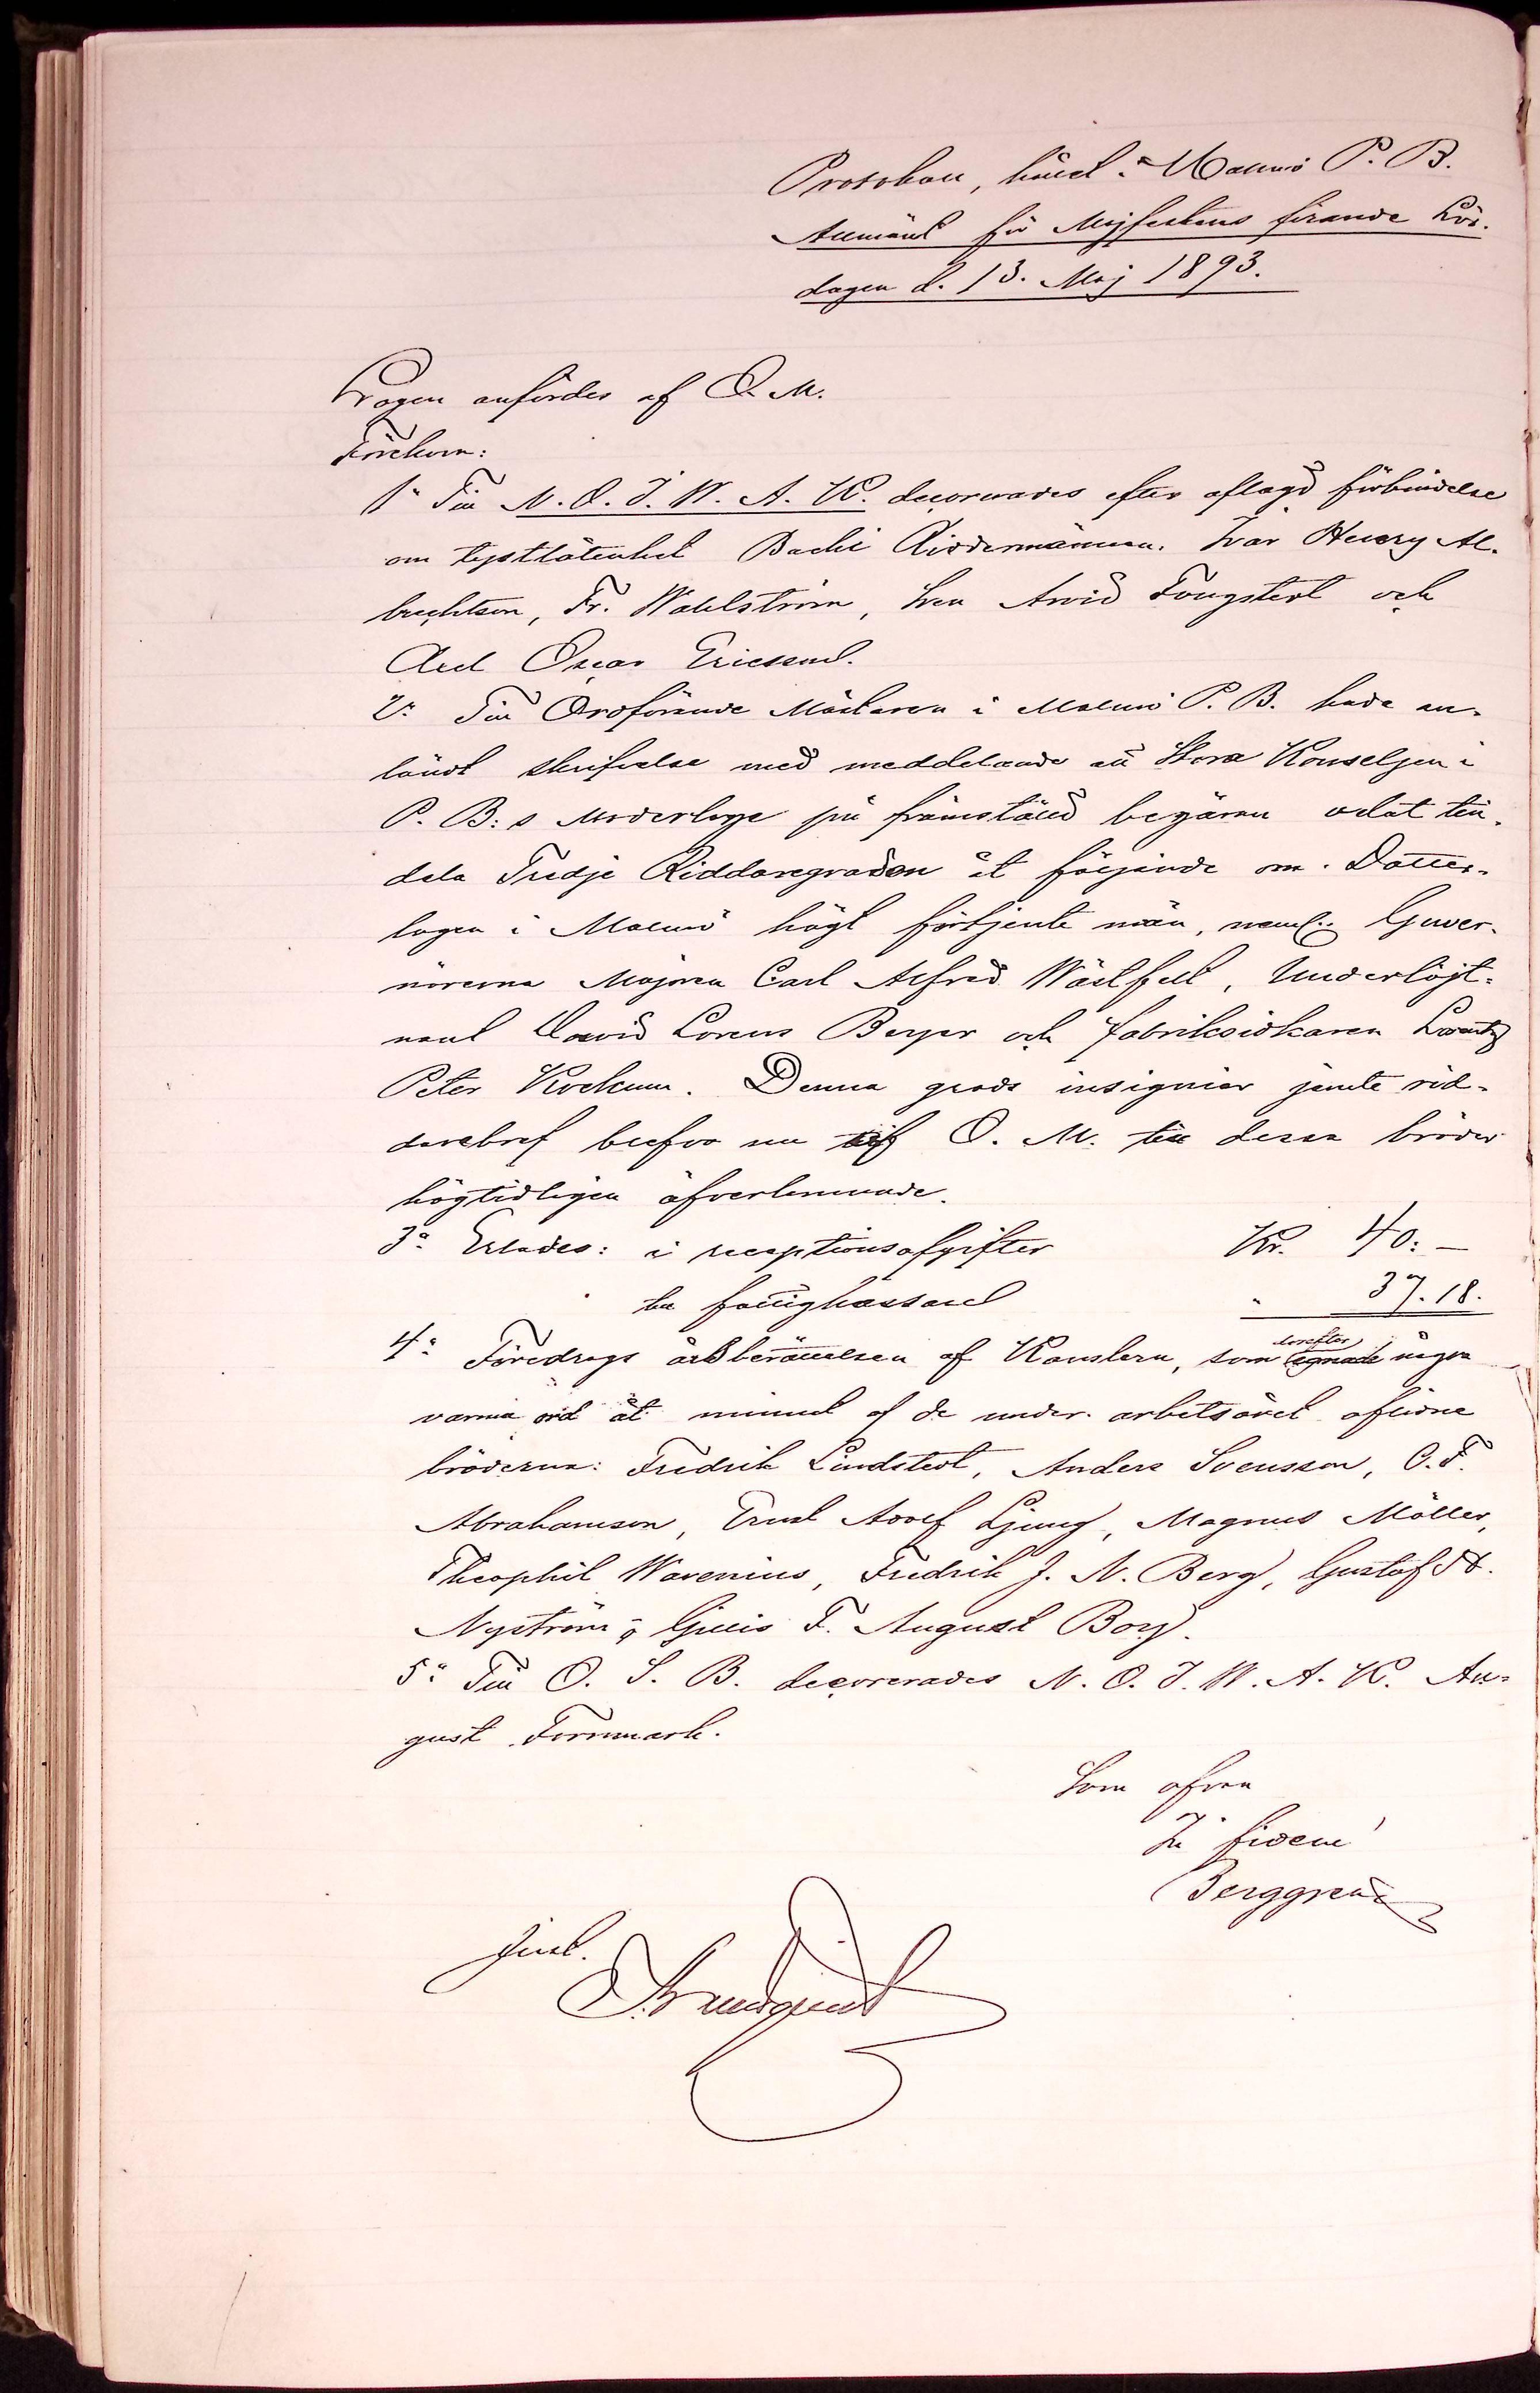 Protokoll, hållet i Malmö P. B.
Allmänt för Majfestens firande Lör-
dagen d. 13. Maj 1893.
Logen anfördes af O. M.
Förekom:
1:o Till N. O. J. W. A. K. decorerades efter aflagd förbindelse
om tysthåtenhet Bachi Riddermännen. Ivar Henry Al-
brechtson, Fr. Wahlström, Sven Arvid Tongstedt och
Axel Oscar Ericsson.
2:o Till Ordförande Mästaren i Malmö P. B. hade an-
ländt skrifvelse med meddelande att Stora Konseljen i
P. B:s Moderloge på framställd begäran velat till-
dela Tredje Riddaregraden åt följande om Dotter-
logen i Malmö högt förtjente män, neml: Guver-
nörerna Majoren Carl Alfred Wästfelt, Underlöjt-
nant David Lorens Beyer och fabriksidkaren Lorentz
Peter Kockum. Denna grads insignier jemte rid-
darebref blefvo nu af O. M. till dessa bröder
högtidligen öfverlemnade.
3:o Erlades: i receptionsafgifter Kr. 40: –
till fattigkassan " 37. 18.
4:o Föredrogs årsberättelsen af Kanslern, som derefter egnade några
varma ord åt minnet af de under arbetsåret aflidne
bröderna: Fredrik Lindstedt, Anders Svensson, O. F.
Abrahamson, Ernst Adolf Ljung, Magnus Möller,
Theophil Warenius, Fredrik J. N. Berg, Gustaf A.
Nyström & Gillis F. August Borg.
5:o Till O. S. B. decorerades N. O. J. W. A. K. Au-
gust Tornmark.
Som ofvan
In fidem
Berggren
Just.